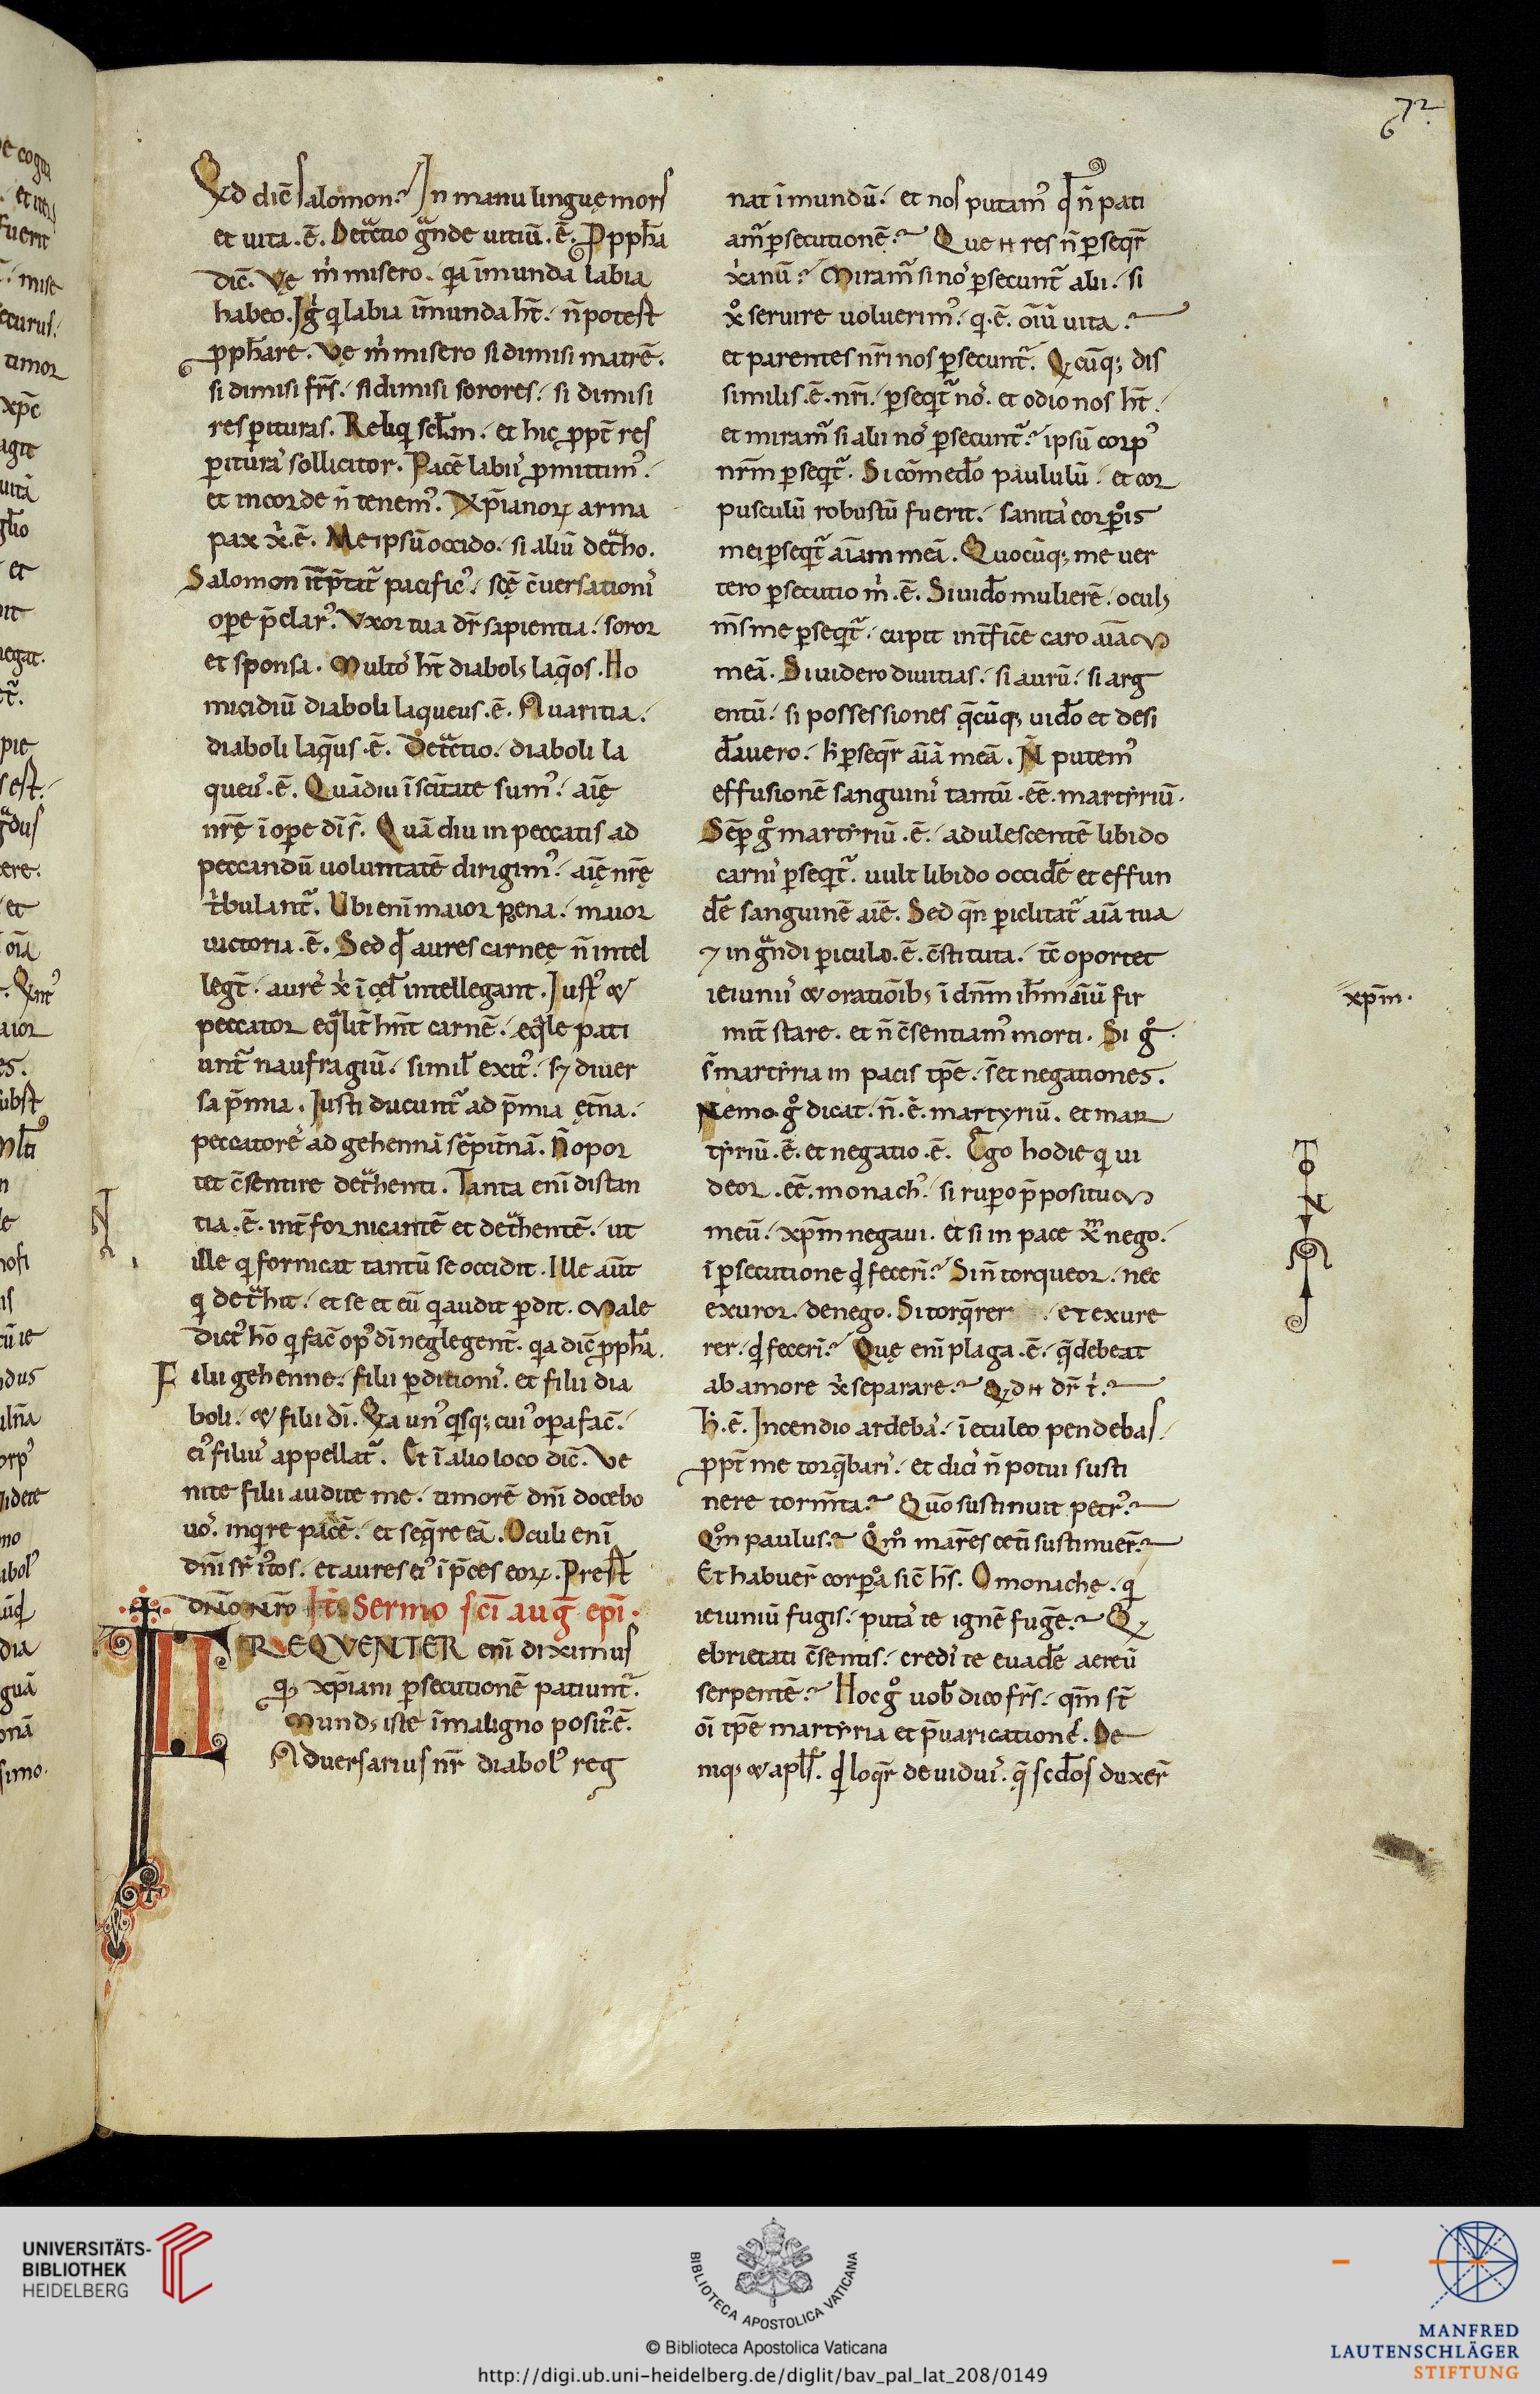 72
6
Qd dic̄ salomon? In manu linguę mors
et uita .ē. Detͣctio gͣnde uitiū .ē. Ꝓpph̄a
dic̄. Vę m̓ misero. qͥa īmunda labia
habeo. Igͥ qͥ labia īmunda hn̄t. n̄ potest
ꝓph̄are. Vę m̓ misero si dimisi matrē.
si dimisi frs̄. si dimisi sorores. si dimisi
res ꝑituras. Reliqͥ scl̄m. et hic ꝓpt̄ res
ꝑituras sollicitor. Pacē labiis ꝓmittimꝰ.
et in corde n̄ tenemꝰ. Xp̄ianoꝝ arma
pax xͥ .ē. Me ipsū occido. si aliū detͣho.
Salomon int̄p̄tat᷑ pacificꝰ. scę̄ c̄uersationis
opere p̄clarꝰ. Vxor tua dr̄ sapientia. soror
et sponsa. Multos ht̄ diabolꝰ laq̄os. Ho
micidiū diaboli laqueus .ē. Auaritia.
diaboli laq̄us .ē. Detͣctio. diaboli la
queus .ē. Quādiu ī sc̄itate sumꝰ. aīę
nrę̄ ī ope dī st̄. Quā diu in peccatis ad
peccandū uoluntatē dirigimꝰ. aīę nrę̄
tͥbulant᷑. Vbi enī maior pena. maior
uictoria .ē. Sed qd̄ aures carneę n̄ intel
legt̄. aures xͥ ī cęl̄ intellegant. Iustꝰ &
peccator eqͣlit̄ hn̄t carnē. eqͣle pati
unt᷑ naufragiū. simil̄ exitꝰ. s; diuer
sa p̄mia. Iusti ducunt᷑ ad p̄mia ęt̄na.
peccatores ad gehennā sēpit̄nā. N̄ opor
tet c̄sentire detͣhenti. Tanta enī distan
tia .ē. int̄ fornicantē et detͣhentē. ut
ille qͥ fornicat tantū se occidit. Ille aūt
qͥ detͣhit. et se et eū qͥ audit ꝑdit. Male
dictꝰ hō qͥ fac̄ opꝰ dī neglegent̄. qͥa dic̄ ꝓpph̄a.
Filii gehenne. filii ꝑditionis. et filii dia
boli. & filii dī. Qͥa unꝰ qͥsq; cuiꝰ oꝑa fac̄.
eiꝰ filius appellat᷑. Et ī alio loco dic̄. Ve
nite filii audite me. timorē dn̄i docebo
uos. inqͥre pacē. et seq̄re eā. Oculi enī
dn̄i sr̄ iͥtos. et aures eiꝰ ī p̄ces eoꝝ. Prest̄
dn̄o nr̄o It̄ Sermo sc̄i aug̅ ep̄i.
FREQVENTER enī diximus
qͣ xp̄iani ꝑsecutionē patiunt᷑.
Mundꝰ iste ī maligno positꝰ.ē.
Aduersarius nr̄ diabolꝰ reg
nat ī mundū. et nos putamꝰ qd̄ n̄ pati
am᷑ ꝑsecutionē? Que ħ res n̄ ꝑseqͥr̄
xͥanū? Miram᷑ si nos ꝑsecunt᷑ alii. si
xͦ seruire uoluerimꝰ. qͥ .ē. oīū uita?
et parentes nr̄i nos ꝑsecunt᷑. Qͥcūq; dis
similis .ē. nr̄i. ꝑseqͥt᷑ nos. et odio nos ht̄.
et miram᷑ si alii nos ꝑsecunt᷑? ipsū corpꝰ
nr̄m ꝑseqͥt᷑. Si cōmedo paululū. et cor
pusculū robustū fuerit. sanitas corꝑis
mei ꝑseqͥt᷑ aīam meā. Quocūq; me uer
tero ꝑsecutio m̓ .ē. Si uido mulierē. oculꝰ
ms̄ me ꝑseqͥt᷑. cupit int̄fic̄e caro aīam
meā. Si uidero diuitias. si aurū. si arg
entū. si possessiones q̄cūq; uido et desi
dauero. h̓ ꝑseqr̄ aīā meā. N̄ putemꝰ
effusionē sanguinis tantū .ēē. martyriū.
Sēꝑ gͦ martyriū .ē. adulescentē libido
carnis ꝑseqͥt᷑. uult libido occidē et effun
dē sanguinē aīē. Sed qn̄ ꝑiclitat᷑ aīa tua
⁊ in gͣndi ꝑiculo .ē. c̄stituta. tc̄ oportet
ieiuniis & orationib; ī dn̄m ih̄m aīū fir
mit̄ stare. et n̄ c̄sentiamꝰ morti. Si gͦ
s̄ martyria in pacis tp̄e. s̄ et negationes.
Nemo gͦ dicat. n̄ .ē. martyriū. et mar
tyriū .ē. et negatio .ē. Ego hodie qͥ ui
deor .ēē. monachꝰ. si rupo p̄positum
meū. xp̄m negaui. et si in pace xᵐ nego.
ī ꝑsecutione qͥd feceri? Si n̄ torqueor. nec
exuror. denego. Si torq̄rer . et exure
rer. qͥd feceri? Quę enī plaga .ē. q̄ debeat
ab amore xͥ separare? Qd ħ dr̄ t̓.
h̓ .ē. Incendio ardebas. ī eculeo pendebas.
ꝓpt̄ me torq̄baris. et dicis n̄ potui susti
nere torm̄ta? Quō sustinuit petrꝰ?
Qͦm paulus? Qͦm mar̄es ceti sustinuer̄?
Et habuer̄ corꝑa sic̄ hs̄. O monachę. qͥ
ieiuniū fugis. putas te ignē fuge? Qͥ
ebrietati c̄sentis. credis te euade aereū
serpentē? Hoc gͦ uob̄ dico frs̄. qm̄ st̄
oī tp̄e martyria et p̄uaricationes. De
niq; & apl̄s. qd̄ loqr̄ de uiduis. q̄ scdos duxer̄
xp̄m.
UNIVERSITÄTS-
BIBLIOTHEK
HEIDELBERG
BIBLIOTECA APOSTOLICA VATICANA
© Biblioteca Apostolica Vaticana
http://digi.ub.uni-heidelberg.de/diglit/bav_pal_lat_208/0149
MANFRED
LAUTENSCHLÄGER
STIFTUNG